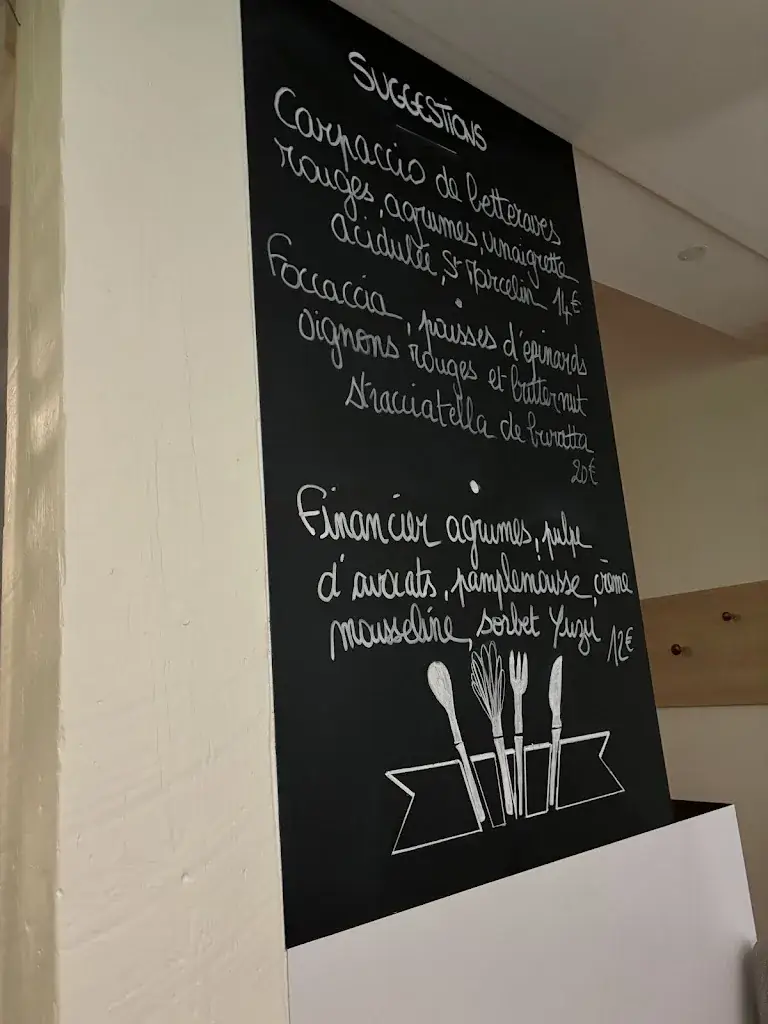 SUGGESTIONS
Carpaccio de betteraves
rouges, agrumes, vinaigrette
acidulée, St Marcelin 14€
Foccaccia, pousses d'épinards
oignons rouges et butternut
stracciatella de buratta
20€
Financier agrumes, pulpe
d'avocats, pamplemousse, crème
mousseline, sorbet Yuzu 12€